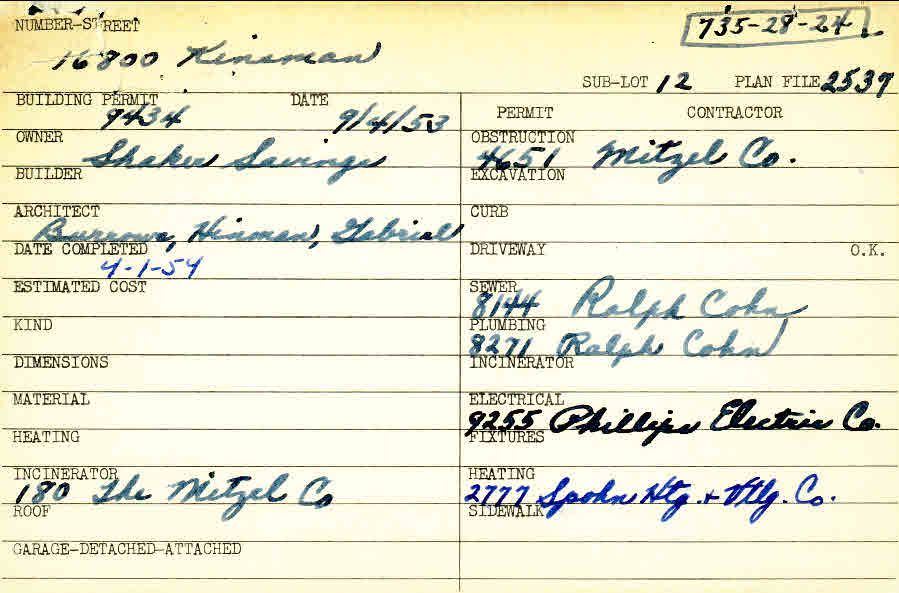 NUMBER-STREET
735-28-24
16800 Kinsman
SUB-LOT 12 PLAN FILE 2537
BUILDING PERMIT DATE
9434 9/4/53
OWNER
Shaker Savings
BUILDER
ARCHITECT
Burrows, Hinman, Gabriel
DATE COMPLETED
4-1-54
ESTIMATED COST
KIND
DIMENSIONS
MATERIAL
HEATING
INCINERATOR
180 The Mitzel Co
ROOF
GARAGE-DETACHED-ATTACHED
PERMIT CONTRACTOR
OBSTRUCTION
4651 Mitzel Co.
EXCAVATION
CURB
DRIVEWAY O.K.
SEWER
8144 Ralph Cohn
PLUMBING
8271 Ralph Cohn
INCINERATOR
ELECTRICAL
9255 Phillips Electric Co.
FIXTURES
HEATING
2777 Spohn Htg. + Vtlg. Co.
SIDEWALK